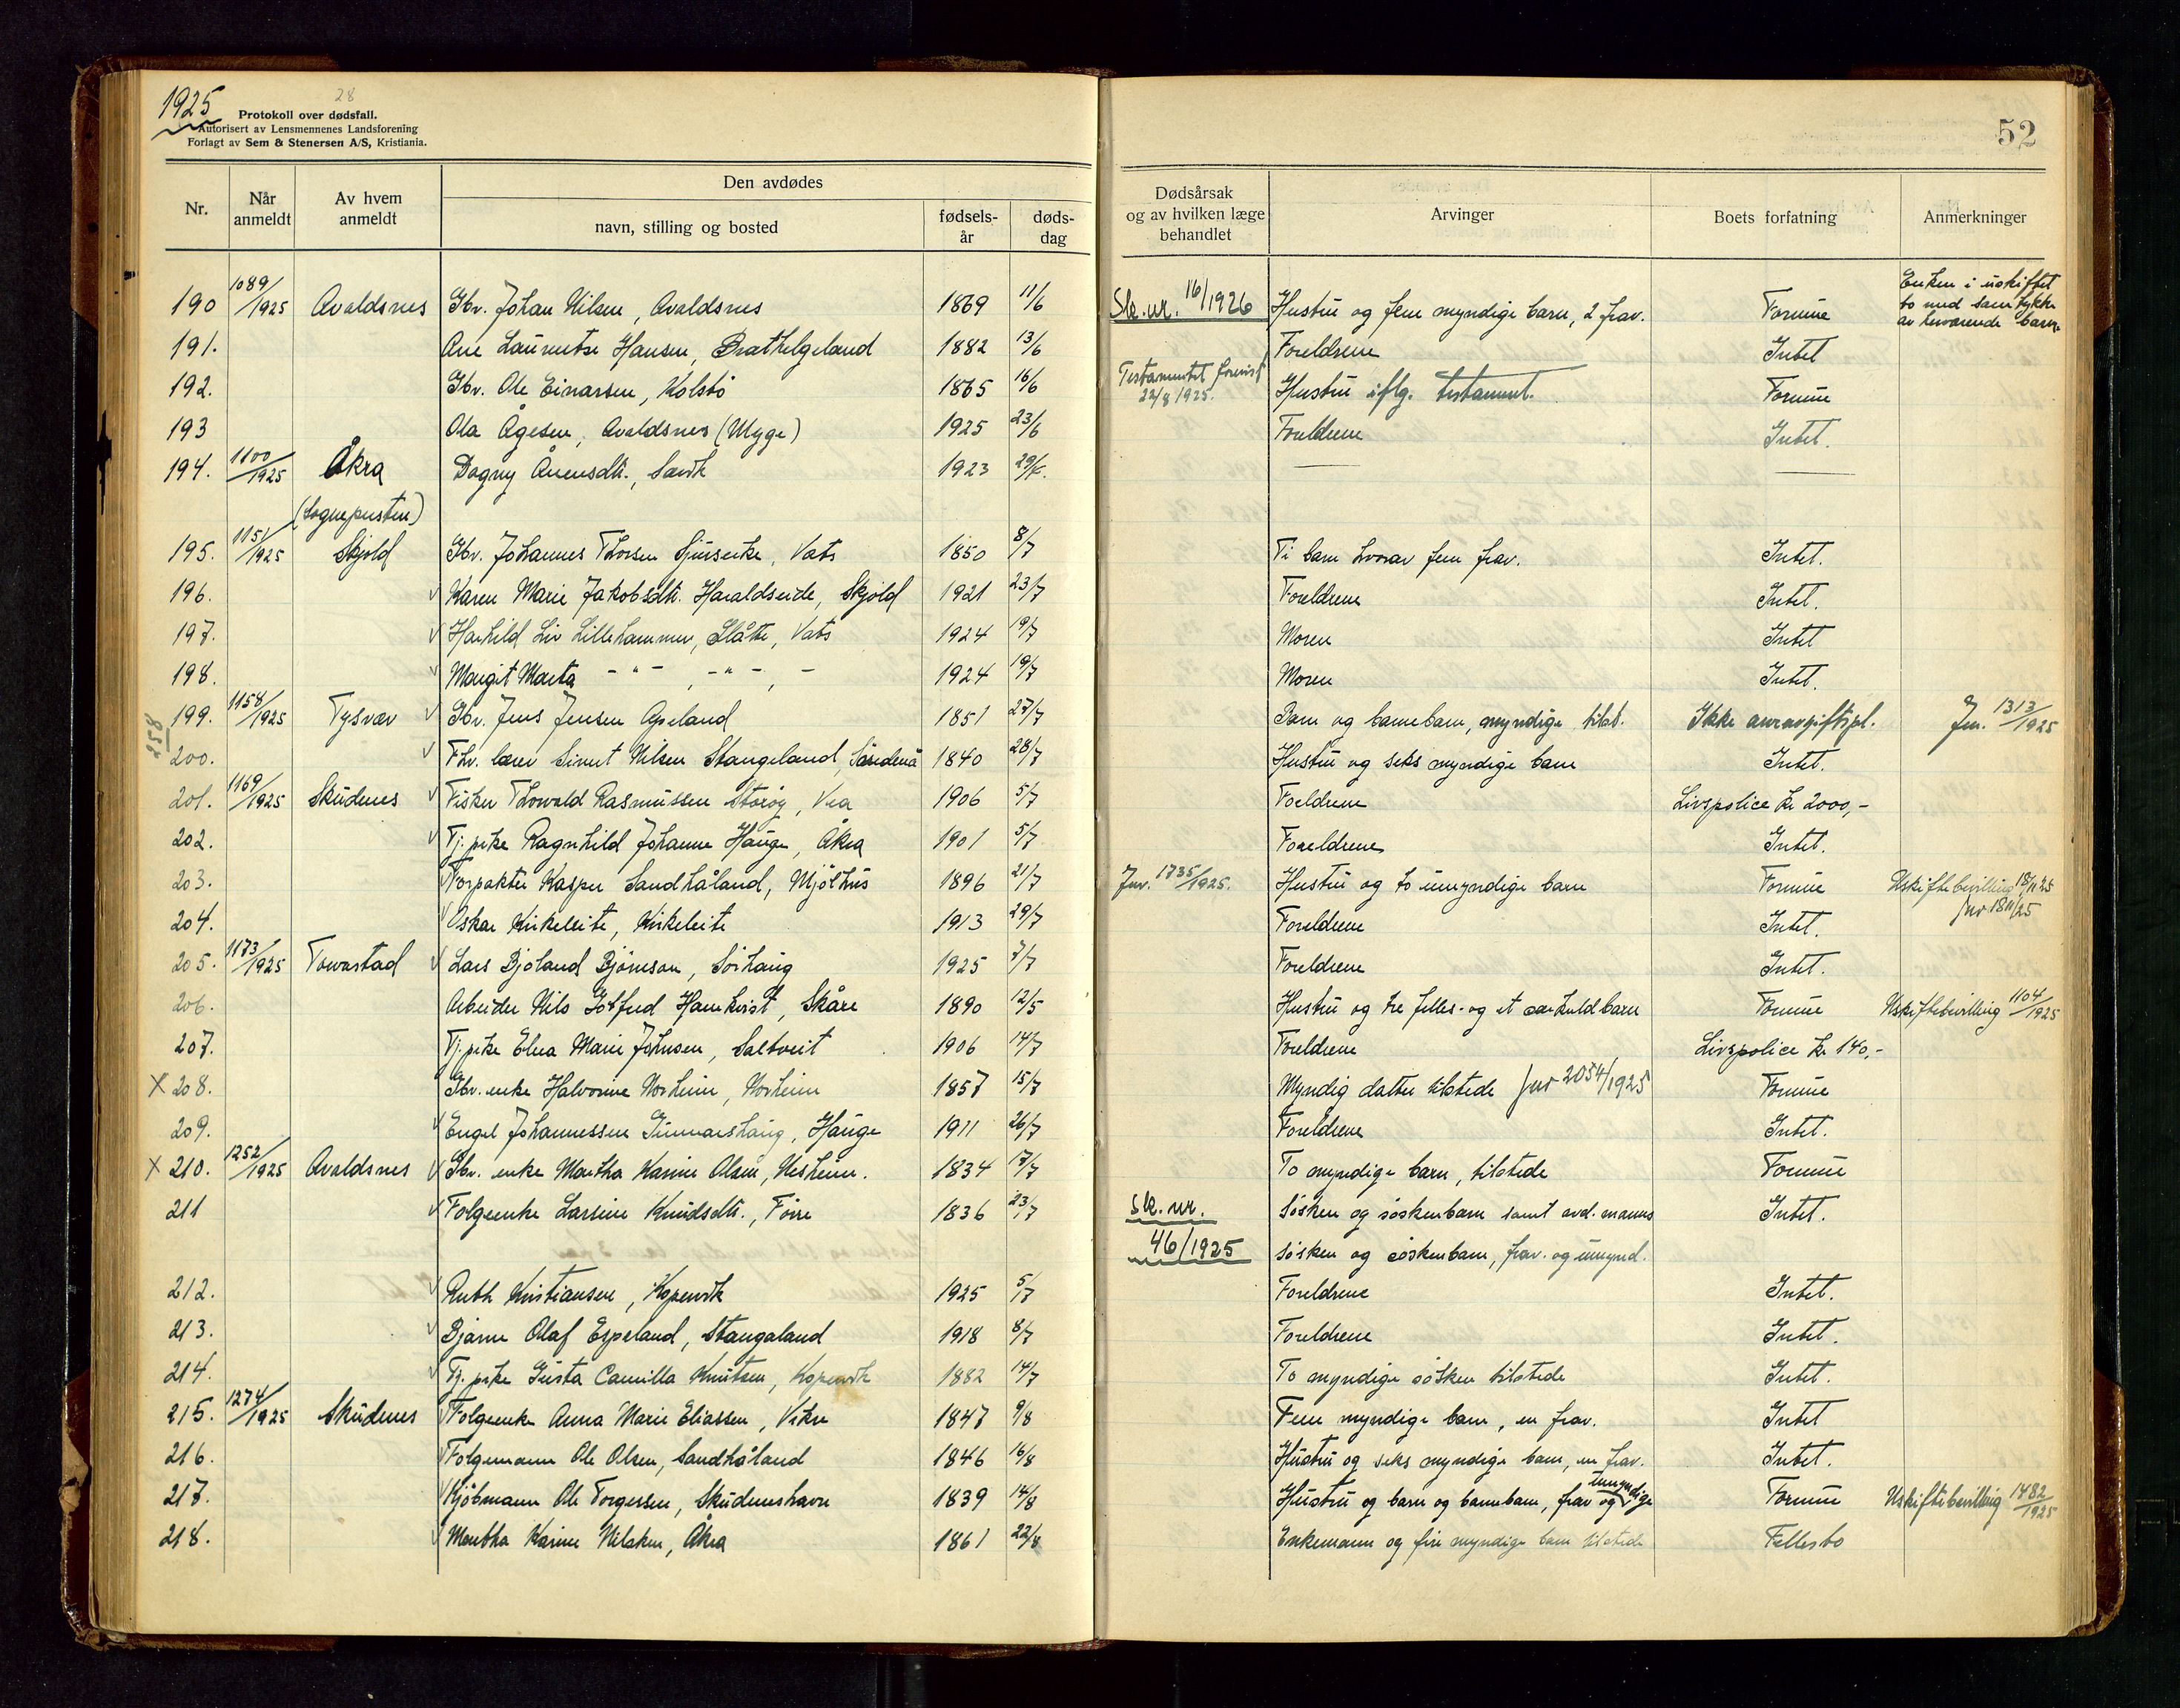 1925
28
Protokoll over dødsfall.
Autorisert av Lensmennenes Landsforening
Forlagt av Sem & Stenersen A/S, Kristiania.
52
Nr. Når anmeldt Av hvem anmeldt Den avdødes navn, stilling og bosted fødselsår dødsdag Dødsårsak og av hvilken læge behandlet Arvinger Boets forfatning Anmerkninger
190 1089/1925 Avaldsnes Gbr. Johan Nilsen, Avaldsnes 1869 11/6 Sk.nr. 16/1926 Hustru og fem myndige barn, 2 frav. Formue Enken i uskiftet bo med samtykke av barn
191. Ane Lauentse Hansen, Brathelgeland 1882 13/6 Foreldrene Intet
192. Gbr. Ole Einarsen, Kolstø 1865 16/6 Testamentet 22/8 1925. Hustru iflg. testament. Formue
193 Ola Ågesen, Avaldsnes (Myge) 1925 23/6 Foreldrene Intet.
194. 1100/1925 Åkra Dagny Ånensdtr., Sævik 1923 29/
(Sognepresten)
195. 1151/1925 Skjold Gbr. Johannes Thorsen, Vats 1850 8/7 Ti barn hvorav fem frav. Intet.
196. Karen Marie Jakobsdtr. Haraldseide, Skjold 1921 23/7 Foreldrene Intet.
197. Liv Lillehammer, Slåtte, Vats 1924 19/7 Moren Intet
198. Margit Marta - " - , - " - , - 1924 19/7 Moren Intet.
258
199. 1158/1925 Tysvær Gbr. Jens Jensen Apeland 1851 27/7 Barn og barnebarn, myndige tilst. Ikke arveavgiftspl. Jnr. 1313/1925
200. Fhv. lærer Simut Nilsen Stangeland 1840 28/7 Hustru og seks myndige barn Intet.
201. 1169/1925 Skudenes Fisker Thorvald Rasmussen Storøy, Vea 1906 5/7 Foreldrene Livspolice kr 2000,-
202. Tj. pike Ragnhild Johanne Hauge, Åkra 1901 5/7 Foreldrene Intet.
203. Forpakter Kasper Sandhåland, Mjølhus 1896 21/7 Jnr. 1735/1925. Hustru og to umyndige barn Formue Uskiftebevilling 18/11 25 jnr 1811/25
204. Oskar Kirkeleite, Kirkeleite 1913 29/7 Foreldrene Intet.
205. 1173/1925 Torvastad Lars Bjøland Bjørnson, Sørhaug 1925 7/7 Foreldrene Intet.
206. Arbeider Nils Gotfred Hamkvist, Skåre 1890 12/5 Hustru og tre felles- og et særkuldbarn Formue Uskiftebevilling 1104/1925
207. Tj. pike Elna Marie Johnsen, Saltveit 1906 14/7 Foreldrene Livspolice kr 140,-
X 208. Gbr. enke Halvorine Norheim, Norheim 1857 15/7 Myndig datter tilstede jnr 2054/1925 Formue
209. Engel Johannessen Gunnarshaug, Hauge 1911 26/7 Foreldrene Intet.
X 210. 1252/1925 Avaldsnes Gbr. enke Martha Karine Olsen, Visheim. 1834 17/7 To myndige barn, tilstede Formue
211 Folgeenke Larsine Knudsdtr., Førre 1836 23/7 Sk. nr. Søsken og søskenbarn samt avd. manns Intet.
46/1925 søsken og søskenbarn, frav. og umynd.
212. Ruth Kristiansen, Kopervik 1925 5/7 Foreldrene Intet.
213. Bjarne Olaf Espeland, Stangaland 1918 8/7 Foreldrene Intet.
214. Tj. pike Gusta Camilla Knutsen, Kopervik 1882 14/7 To myndige søsken tilstede Intet.
215. 1274/1925 Skudenes Folgeenke Anna Marie Eliassen, Vikre 1847 9/8 Fem myndige barn, en frav. Intet
216. Folgemann Ole Olsen, Sandhåland 1846 16/8 Hustru og seks myndige barn, en frav. Intet.
217. Kjøbmann Ole Torgersen, Skudeneshavn 1839 14/8 Hustru og barn og barnebarn, frav og umyndige Formue Uskiftebevilling 1482/1925
218. Martha Karine Nilsken, Åkra 1861 22/8 Enkemann og fire myndige barn tilstede Fellesbo